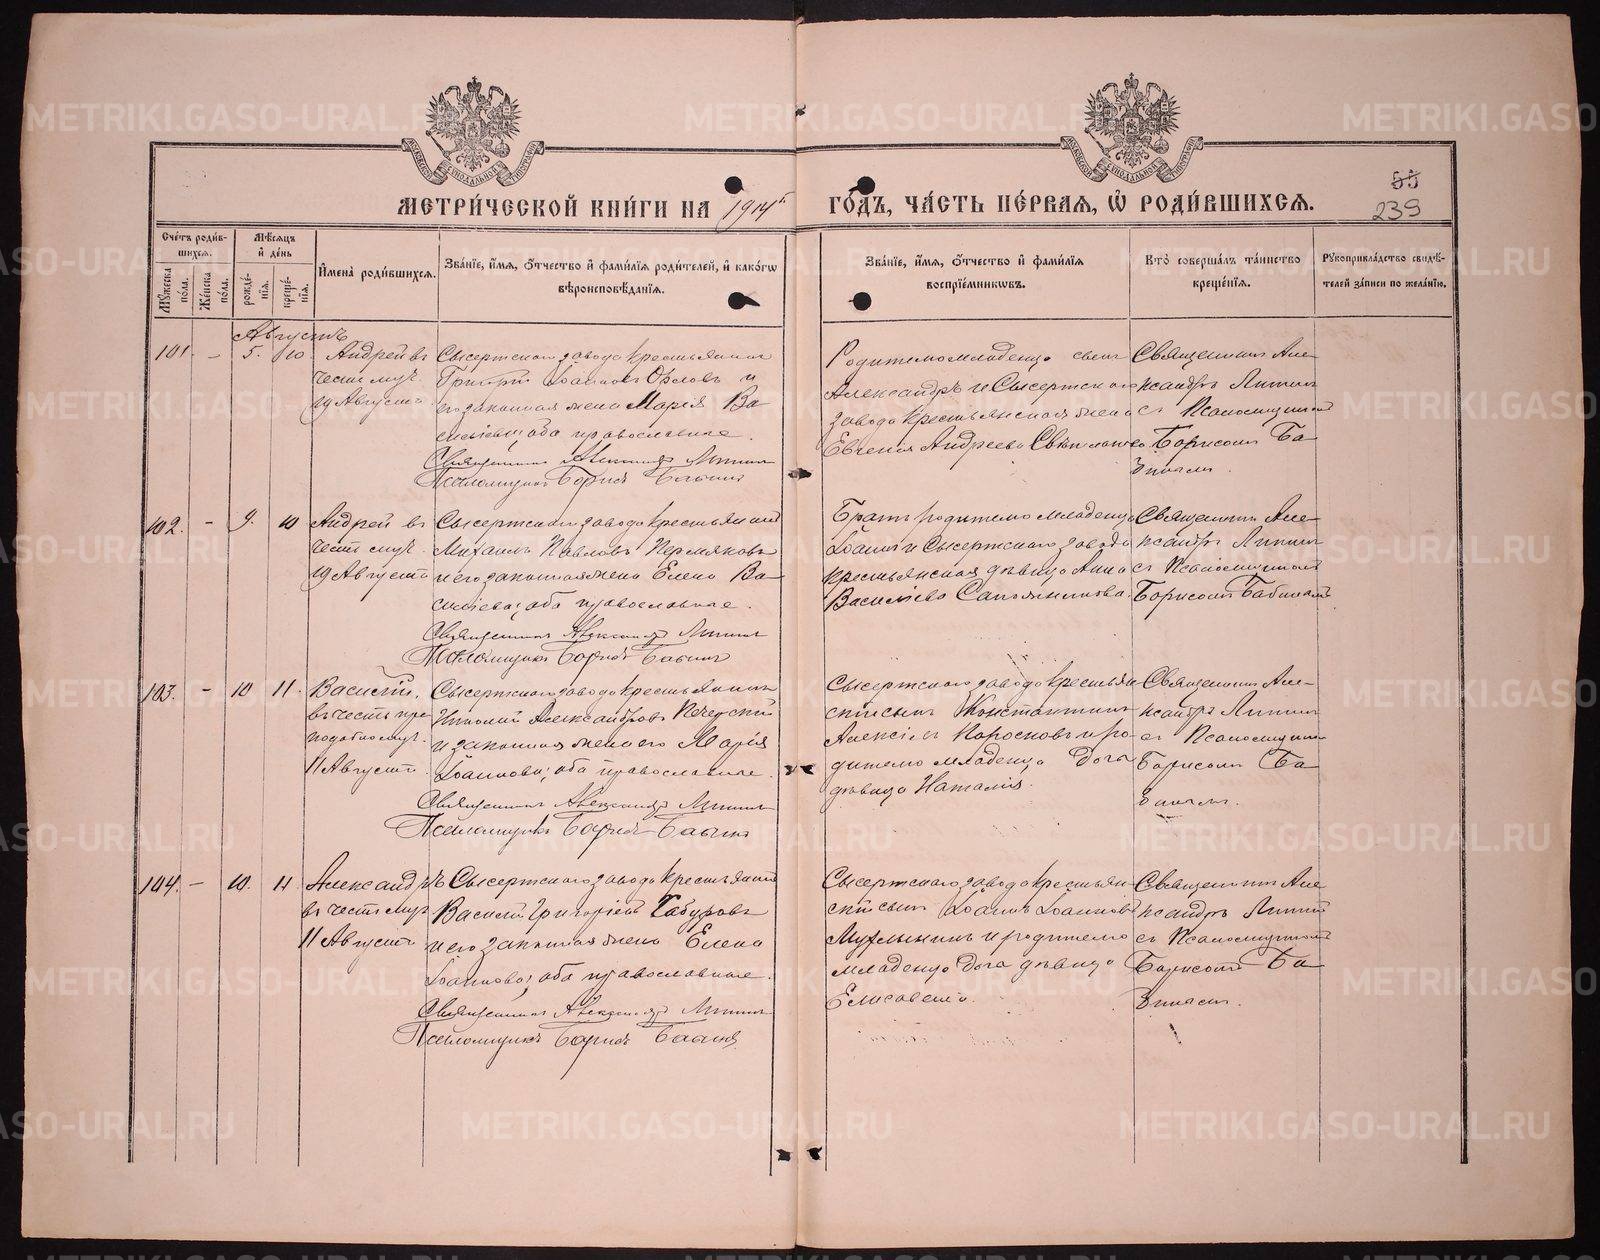 МЕТРИ́ЧЕСКОЙ КНИ́ГИ НА 1914й ГО́ДЪ, ЧА́СТЬ ПЕ́РВАЯ, Ѡ҆ РОДИ́ВШИХСЯ.
55
239
Сче́тъ роди́вшихся.
Му́жеска по́ла.
Же́нска по́ла.
Мѣ́сяцъ и҆ де́нь
рожде́нїя.
креще́нїя.
И҆мена̀ роди́вшихся.
Зва́нїе, и҆́мя, ѻ҆́тчество и҆ фами́лїя роди́телей, и҆ како́гѡ
вѣроисповѣ́данїя.
Зва́нїе, и҆́мя, ѻ҆́тчество и҆ фами́лїя
воспрїе́мникѡвъ.
Кто̀ соверша́лъ та́инство
креще́нїя.
Рꙋкоприкла́дство свидѣ́-
телей за́писи по жела́нїю.
Августъ
101. – 5. 10. Андрей въ
честь муч.
19 Августа
Сысертскаго завода крестьянинъ
Григорій Іоанновъ Орловъ и
его законная жена Марія Ва-
сильева; оба православные.
Священникъ Александръ
Псаломщикъ Борисъ
Родителю младенца
Александръ и Сысертскаго
завода крестьянская жена
Евгенія Андреева
Священникъ Але-
ксандръ
съ Псаломщикомъ
Борисомъ Ба-
102. – 9. 10 Андрей въ
честь муч.
19 Августа
Сысертскаго завода крестьянинъ
Михаилъ Павловъ Пермяковъ
и его законная жена Елена Ва-
силіева; оба православные.
Священникъ Александръ
Псаломщикъ Борисъ
Братъ родителю младенца
Іоаннъ и Сысертскаго завода
крестьянская дѣвица Анна
Василіева
Священникъ Але-
ксандръ
съ Псаломщикомъ
Борисомъ Бабинымъ
103. – 10 11. Василій,
въ честь пре-
подобномуч.
11 Августа
Сысертскаго завода крестьянинъ
Николай Александровъ Печерскій
и законная жена его Марія
Іоаннова; оба православные.
Священникъ Александръ
Псаломщикъ Борисъ
Сысертскаго завода крестьян-
скій сынъ Константинъ
Алексіевъ и ро-
дителю младенца дочь
дѣвица Наталія.
Священникъ Але-
ксандръ
съ Псаломщикомъ
Борисомъ Ба-
104. – 10. 11 Александръ
въ честь муч
11 Августа
Сысертскаго завода крестьянинъ
Василій Григорьевъ Хабуровъ
и его законная жена Елена
Іоаннова; оба православные.
Священникъ Александръ
Псаломщикъ Борисъ
Сысертскаго завода крестьян-
скій сынъ Іоаннъ Іоанновъ
и родителю
младенца дочь дѣвица
Елисавета.
Священникъ Але-
ксандръ
съ Псаломщикомъ
Борисомъ Ба-
METRIKI.GASO-URAL.RU